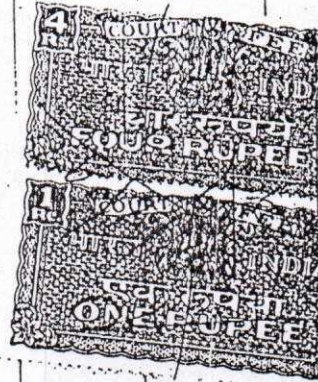 4 COURT FEE
Rs.
भारत INDI
चार रुपये
FOUR RUPEE
1 COURT
Re.
भारत INDIA
एक रुपया
ONE RUPEE